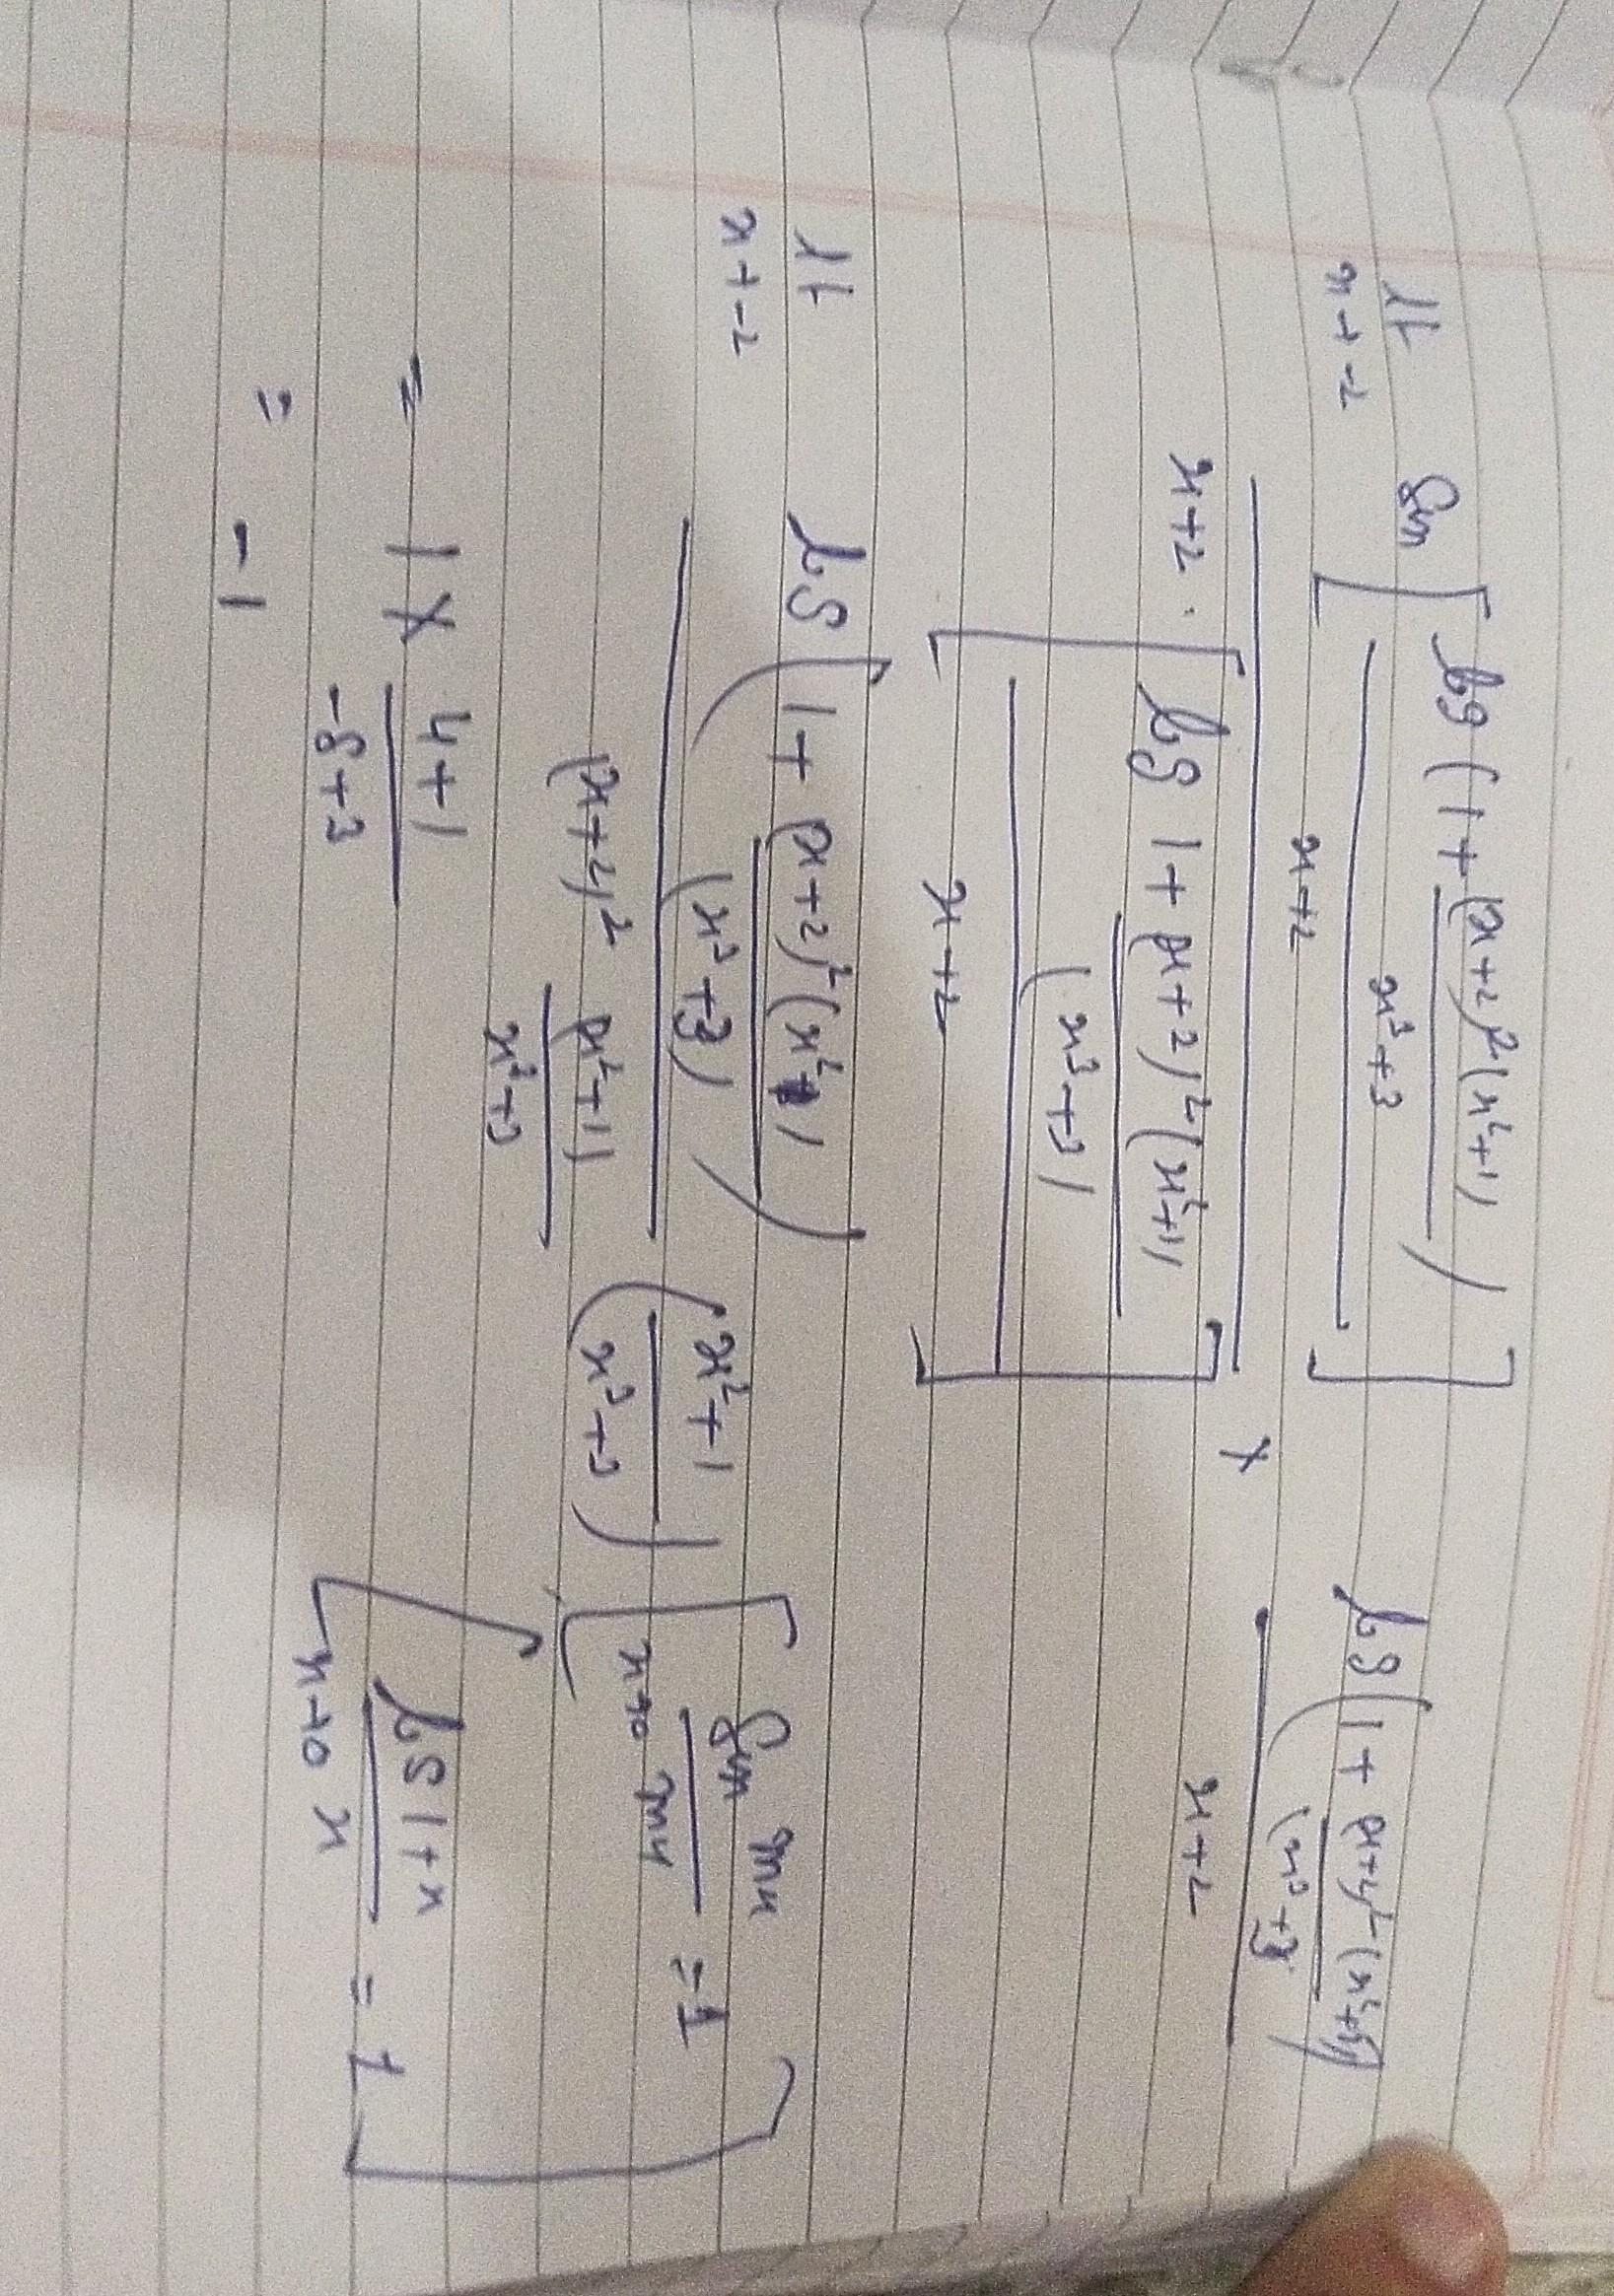 lt x→-2 Sin [ log (1 + (x+2)²(x²+1) / x³+3) / x+2 ]
/ x+2 · [ log 1 + (x+2)²(x²+1) / (x³+3) / x+2 ] × log (1 + (x+2)²(x²+1) / (x³+3)) / x+2
lt x→-2 log (1 + (x+2)²(x²+1) / (x³+3)) / (x+2)² (x²+1) / x³+3 (x²+1 / x³+3) [ x→0 Sin mx / mx = 1
x→0 log 1+x / x = 1 ]
= 1 × 4+1 / -8+3
= -1